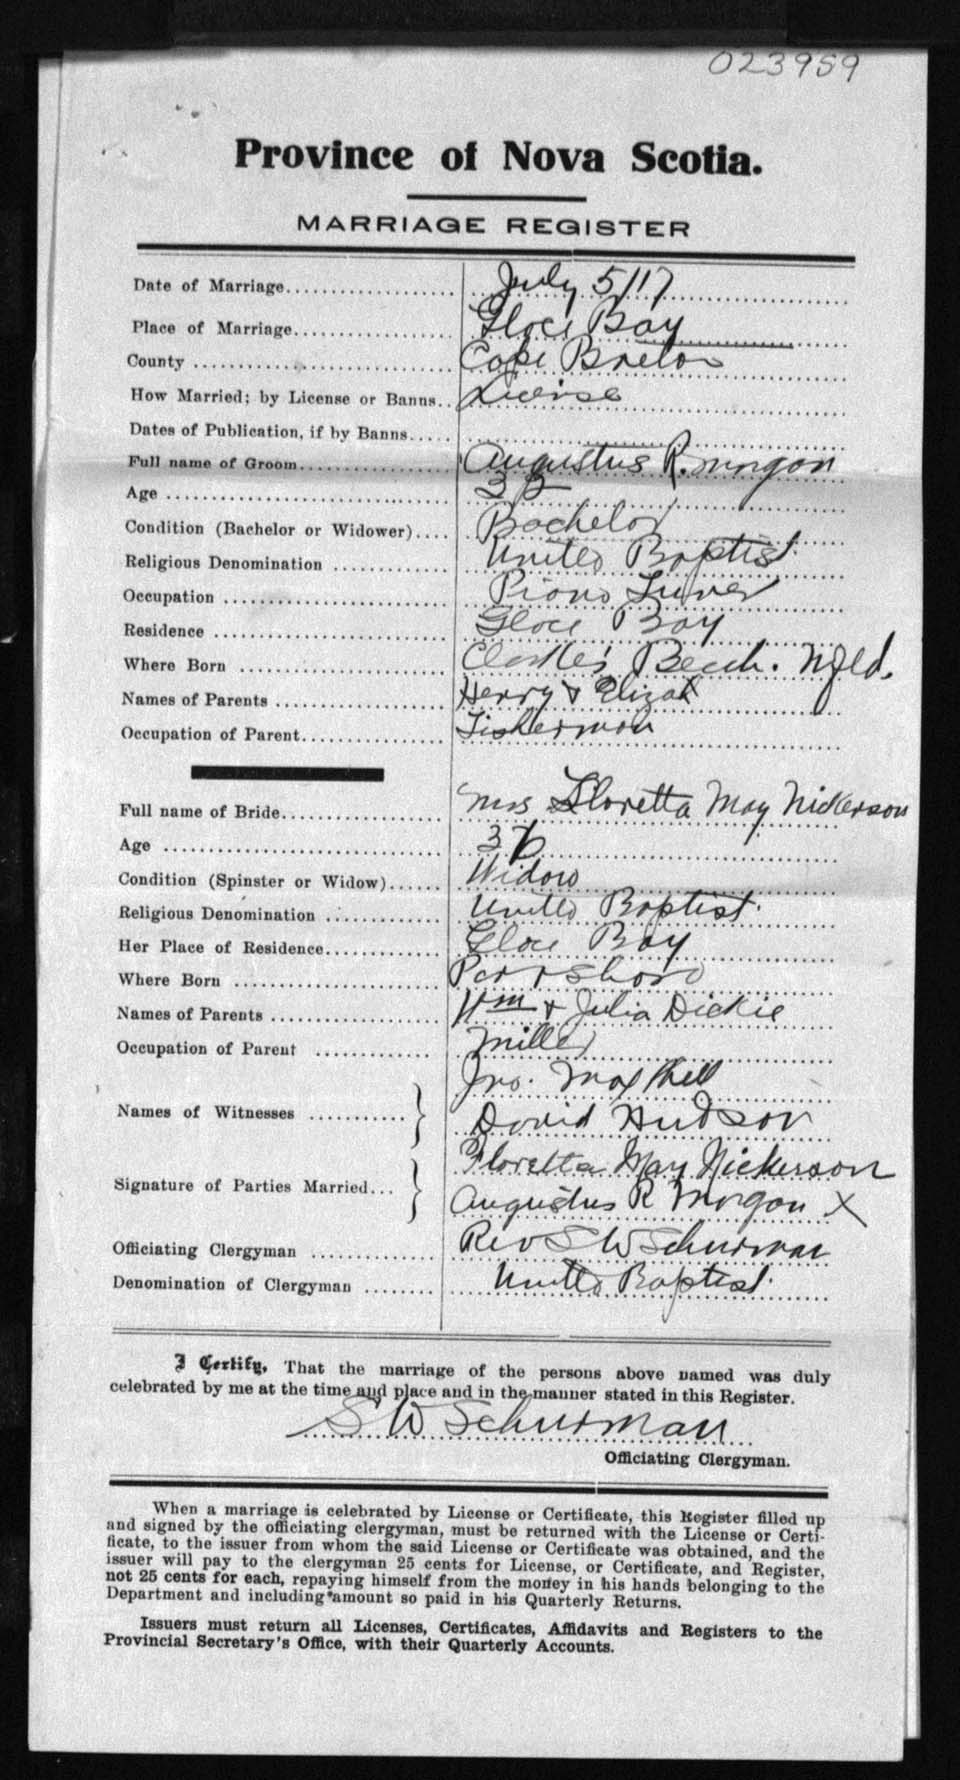 023959
Province of Nova Scotia.
MARRIAGE REGISTER
Date of Marriage.................... July 5/17
Place of Marriage................... Glace Bay
County ............................. Cape Breton
How Married; by License or Banns.. License
Dates of Publication, if by Banns.....
Full name of Groom.................. Augustus R. Morgan
Age ................................
Condition (Bachelor or Widower).... Bachelor
Religious Denomination ............ United Baptist
Occupation ......................... Piano Tuner
Residence .......................... Glace Bay
Where Born ......................... Beach. Nfld.
Names of Parents ................... Henry & Elizah
Occupation of Parent................ Fisherman
Full name of Bride.................. Mrs Floretta May Nickerson
Age ................................ 36
Condition (Spinster or Widow)...... Widow
Religious Denomination ............ United Baptist
Her Place of Residence............. Glace Bay
Where Born ......................... Parrsboro
Names of Parents ................... Wm & Julia Dickie
Occupation of Parent .............. Miller
Jno. Maxhell
Names of Witnesses ........... } David Hudson
Floretta May Nickerson
Signature of Parties Married... } Augustus R Morgan X
Officiating Clergyman ............. Rev S W Schurman
Denomination of Clergyman ........ United Baptist
I Certify, That the marriage of the persons above named was duly
celebrated by me at the time and place and in the manner stated in this Register.
S W Schurman
Officiating Clergyman.
When a marriage is celebrated by License or Certificate, this Register filled up
and signed by the officiating clergyman, must be returned with the License or Certi-
ficate, to the issuer from whom the said License or Certificate was obtained, and the
issuer will pay to the clergyman 25 cents for License, or Certificate, and Register,
not 25 cents for each, repaying himself from the money in his hands belonging to the
Department and including amount so paid in his Quarterly Returns.
Issuers must return all Licenses, Certificates, Affidavits and Registers to the
Provincial Secretary's Office, with their Quarterly Accounts.